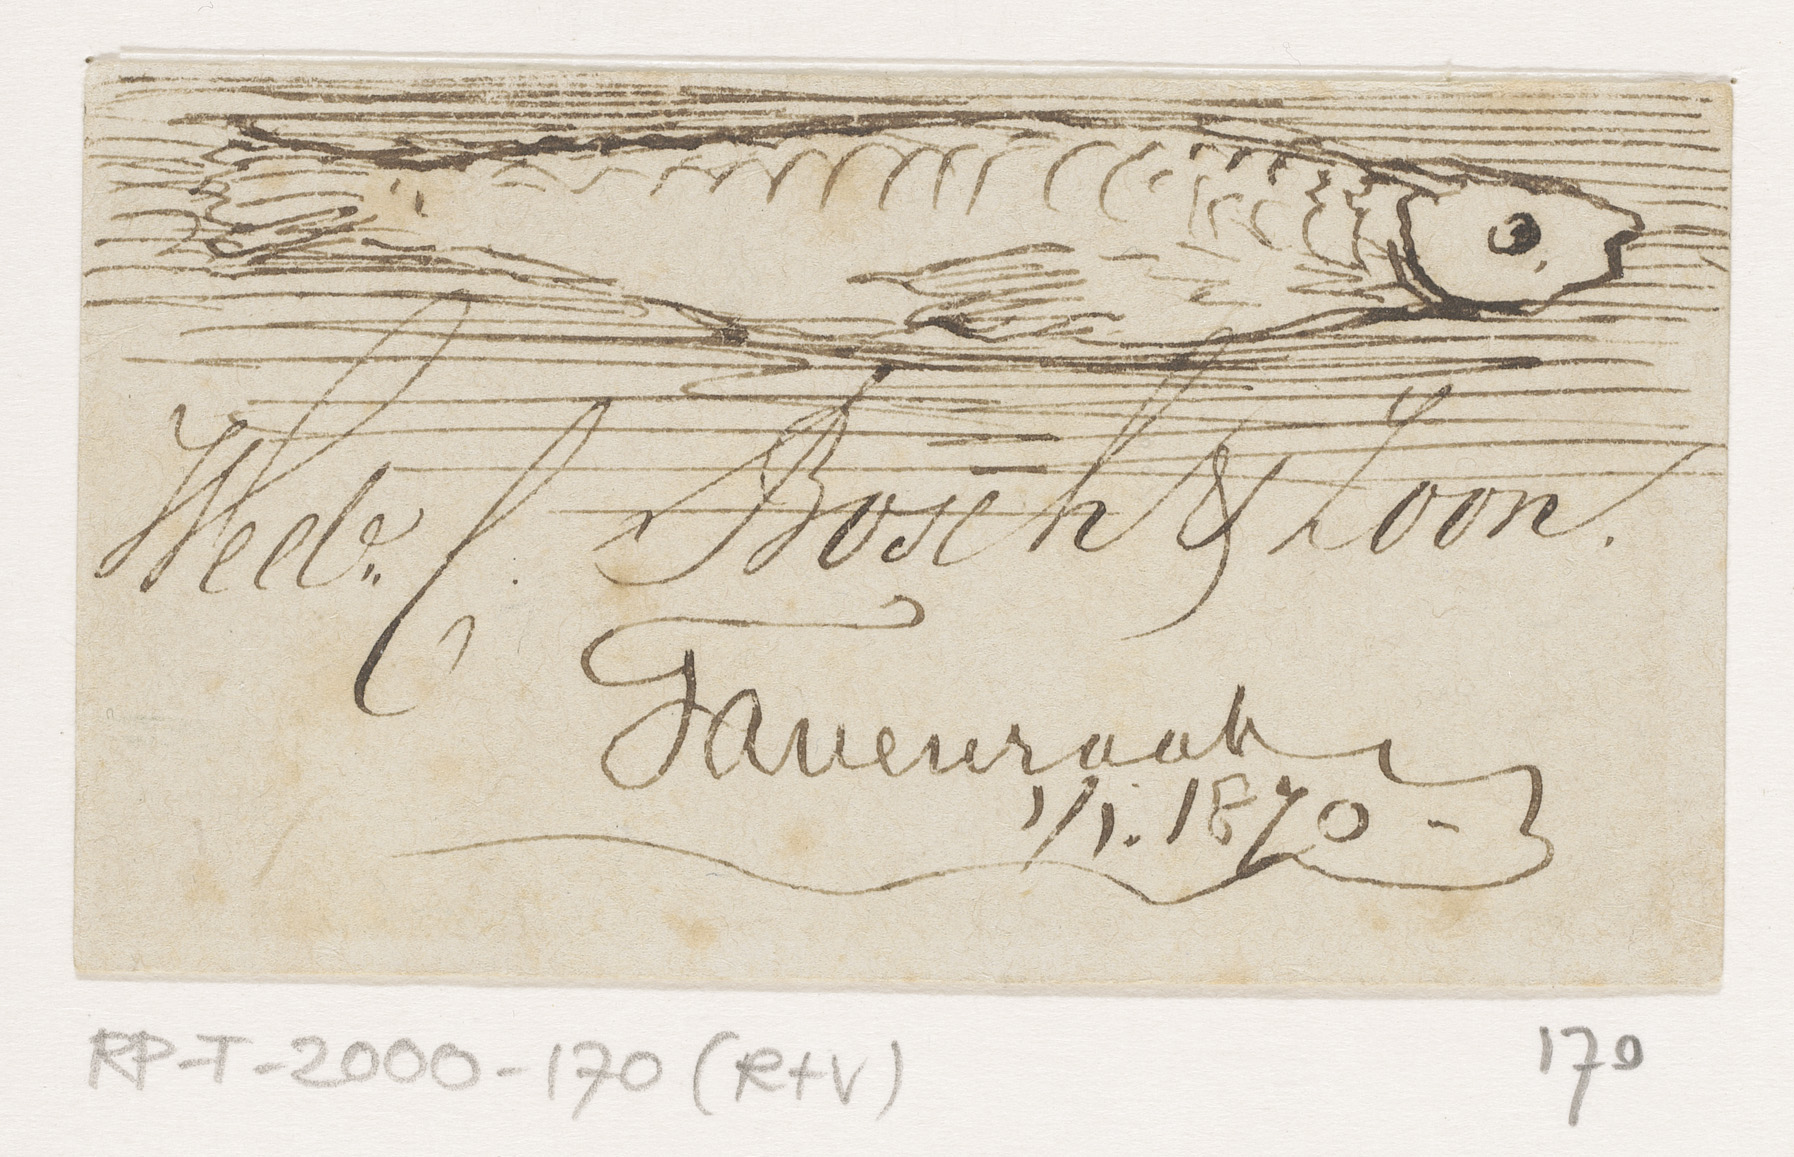 Wed. C. Bosch & Zoon.
Tavenraat
1/1. 1870 -
RP-T-2000-170 (R+V)
170